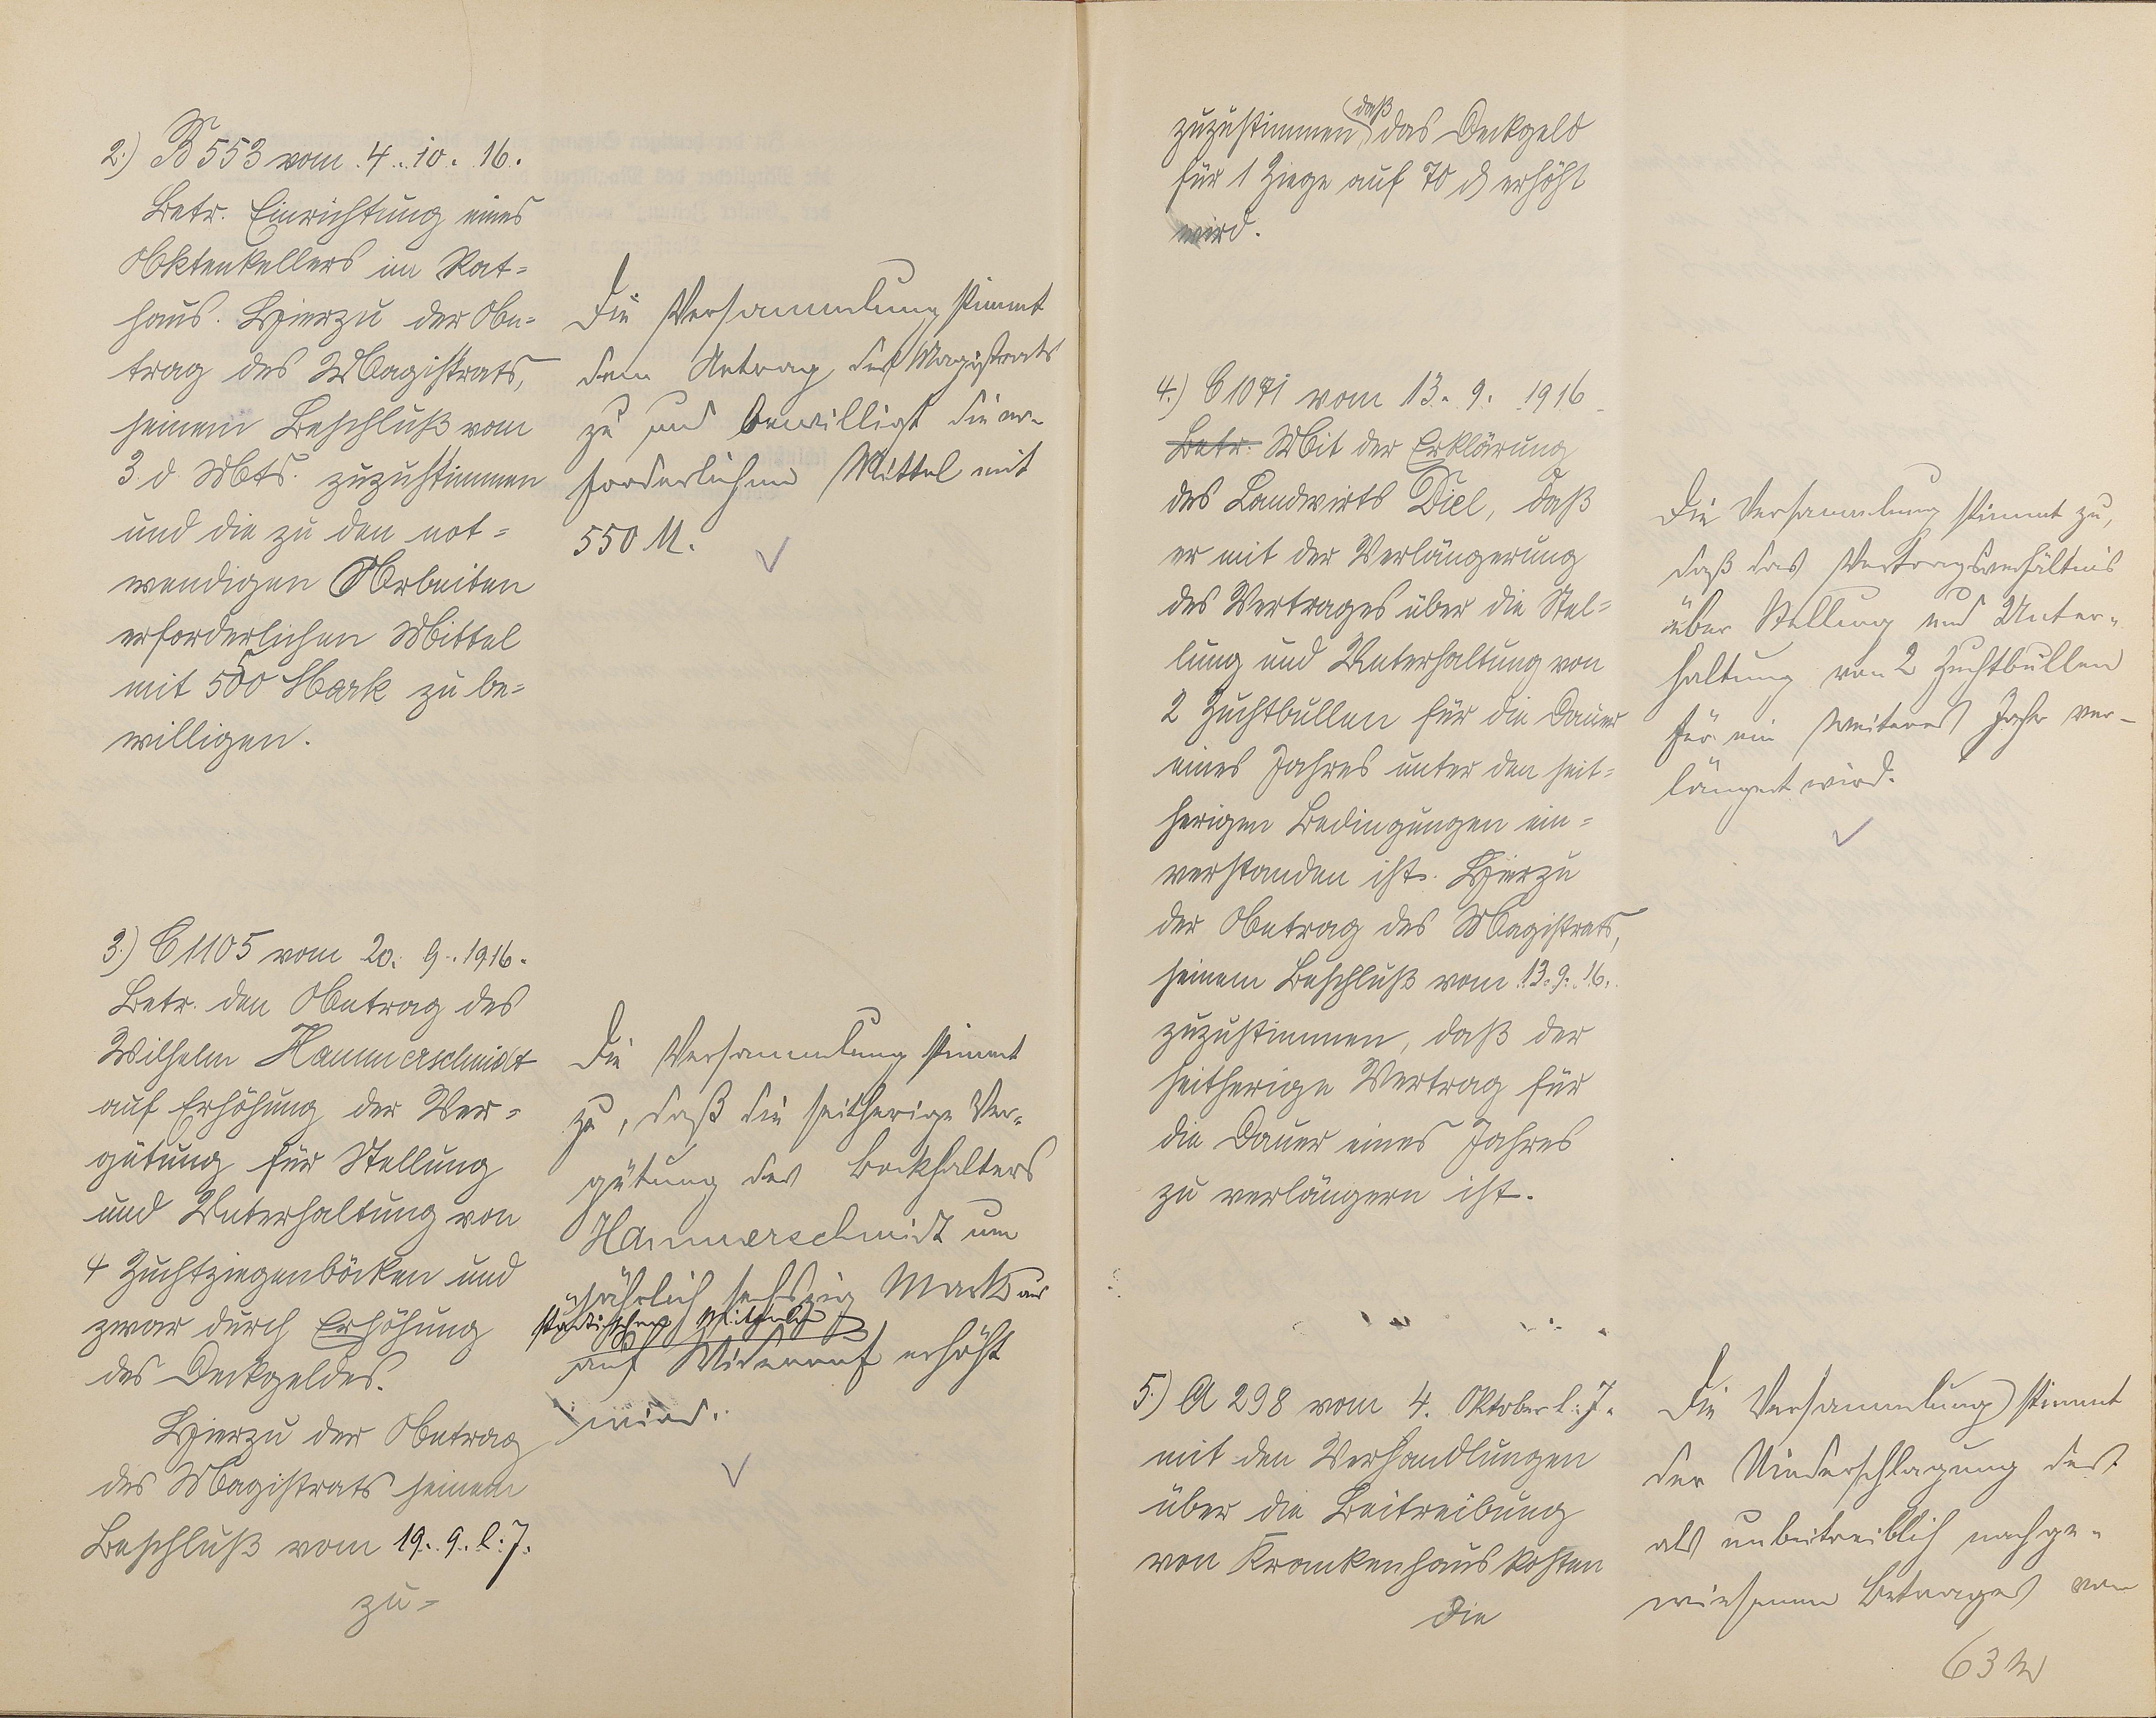 2.) B 553 vom 4. 10. 16.
Betr. Einrichtung eines
Aktenkellers im Rat=
haus. Hierzu der An=
trag des Magistrats,
seinem Beschluß vom
3. d. Mts. zuzustimmen
und die zu den not=
wendigen Arbeiten
erforderlichen Mittel
mit 550 Mark zu be=
willigen.
Die Versammlung stimmt
dem Antrag des Magistrats
zu und bewilligt die er-
forderlichen Mittel mit
550 M.
3.) C 1105 vom 20. 9. 1916.
Betr. den Antrag des
Wilhelm Hammerschmidt
auf Erhöhung der Ver=
gütung für Stellung
und Unterhaltung von
4 Zuchtziegenböcken und
zwar durch Erhöhung
des Deckgeldes.
Hierzu der Antrag
des Magistrats seinem
Beschluß vom 19. 9. l. J.
zu=
Die Versammlung stimmt
zu, daß die seitherige Ver-
gütung des Bockhalters
Hammerschmidt um
jährlich sechszig Mark aus
städtischen Mitteln
auf Widerruf erhöht
wird.
zuzustimmen, daß das Deckgeld
für 1 Ziege auf 70 ₰ erhöht
wird.
4.) C 1071 vom 13. 9. 1916
Betr. Mit der Erklärung
des Landwirts Diel, daß
er mit der Verlängerung
des Vertrages über die Stel=
lung und Unterhaltung von
2 Zuchtbullen für die Dauer
eines Jahres unter den seit=
herigen Bedingungen ein=
verstanden ist. Hierzu
der Antrag des Magistrats,
seinem Beschluß vom 13. 9. 16.
zuzustimmen, daß der
seitherige Vertrag für
die Dauer eines Jahres
zu verlängern ist.
Die Versammlung stimmt zu,
daß das Vertragsverhältnis
über Stellung und Unter-
haltung von 2 Zuchtbullen
für ein weiteres Jahr ver-
längert wird.
5.) A 298 vom 4. Oktober l. J.
mit den Verhandlungen
über die Beitreibung
von Krankenhauskosten
Die
Die Versammlung stimmt
der Niederschlagung des
als unbeitreiblich nachge-
wiesenen Betrages von
63 M